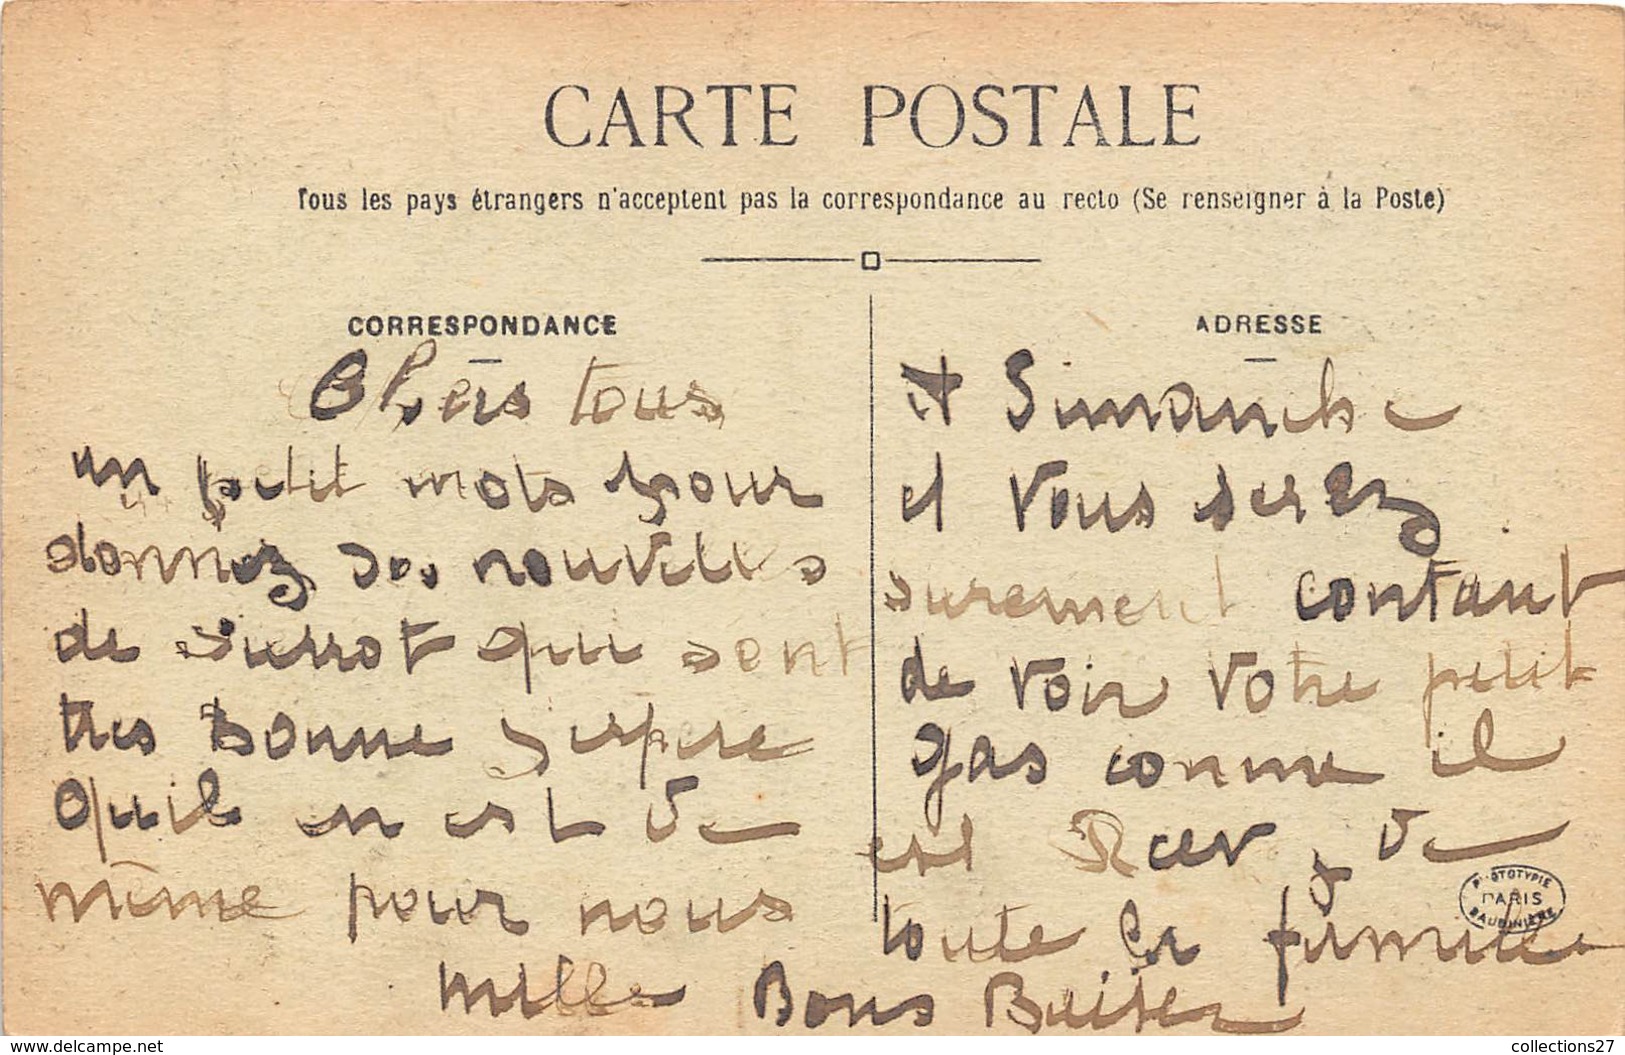 CARTE POSTALE
Tous les pays étrangers n'acceptent pas la correspondance au recto (Se renseigner à la Poste)
CORRESPONDANCE
Chers tous
un petit mots pour
donnez des nouvelles
de qui sont
tres Bonne Jespere
quil en est de
même pour nous
mille Bons Baiser
ADRESSE
A Dimanche
et vous serez
surement contant
de voir votre petit
gas comme il
est de
toute la famille
PHOTOTYPIE
PARIS
BAUDINIÈRE
www.delcampe.net
collections27